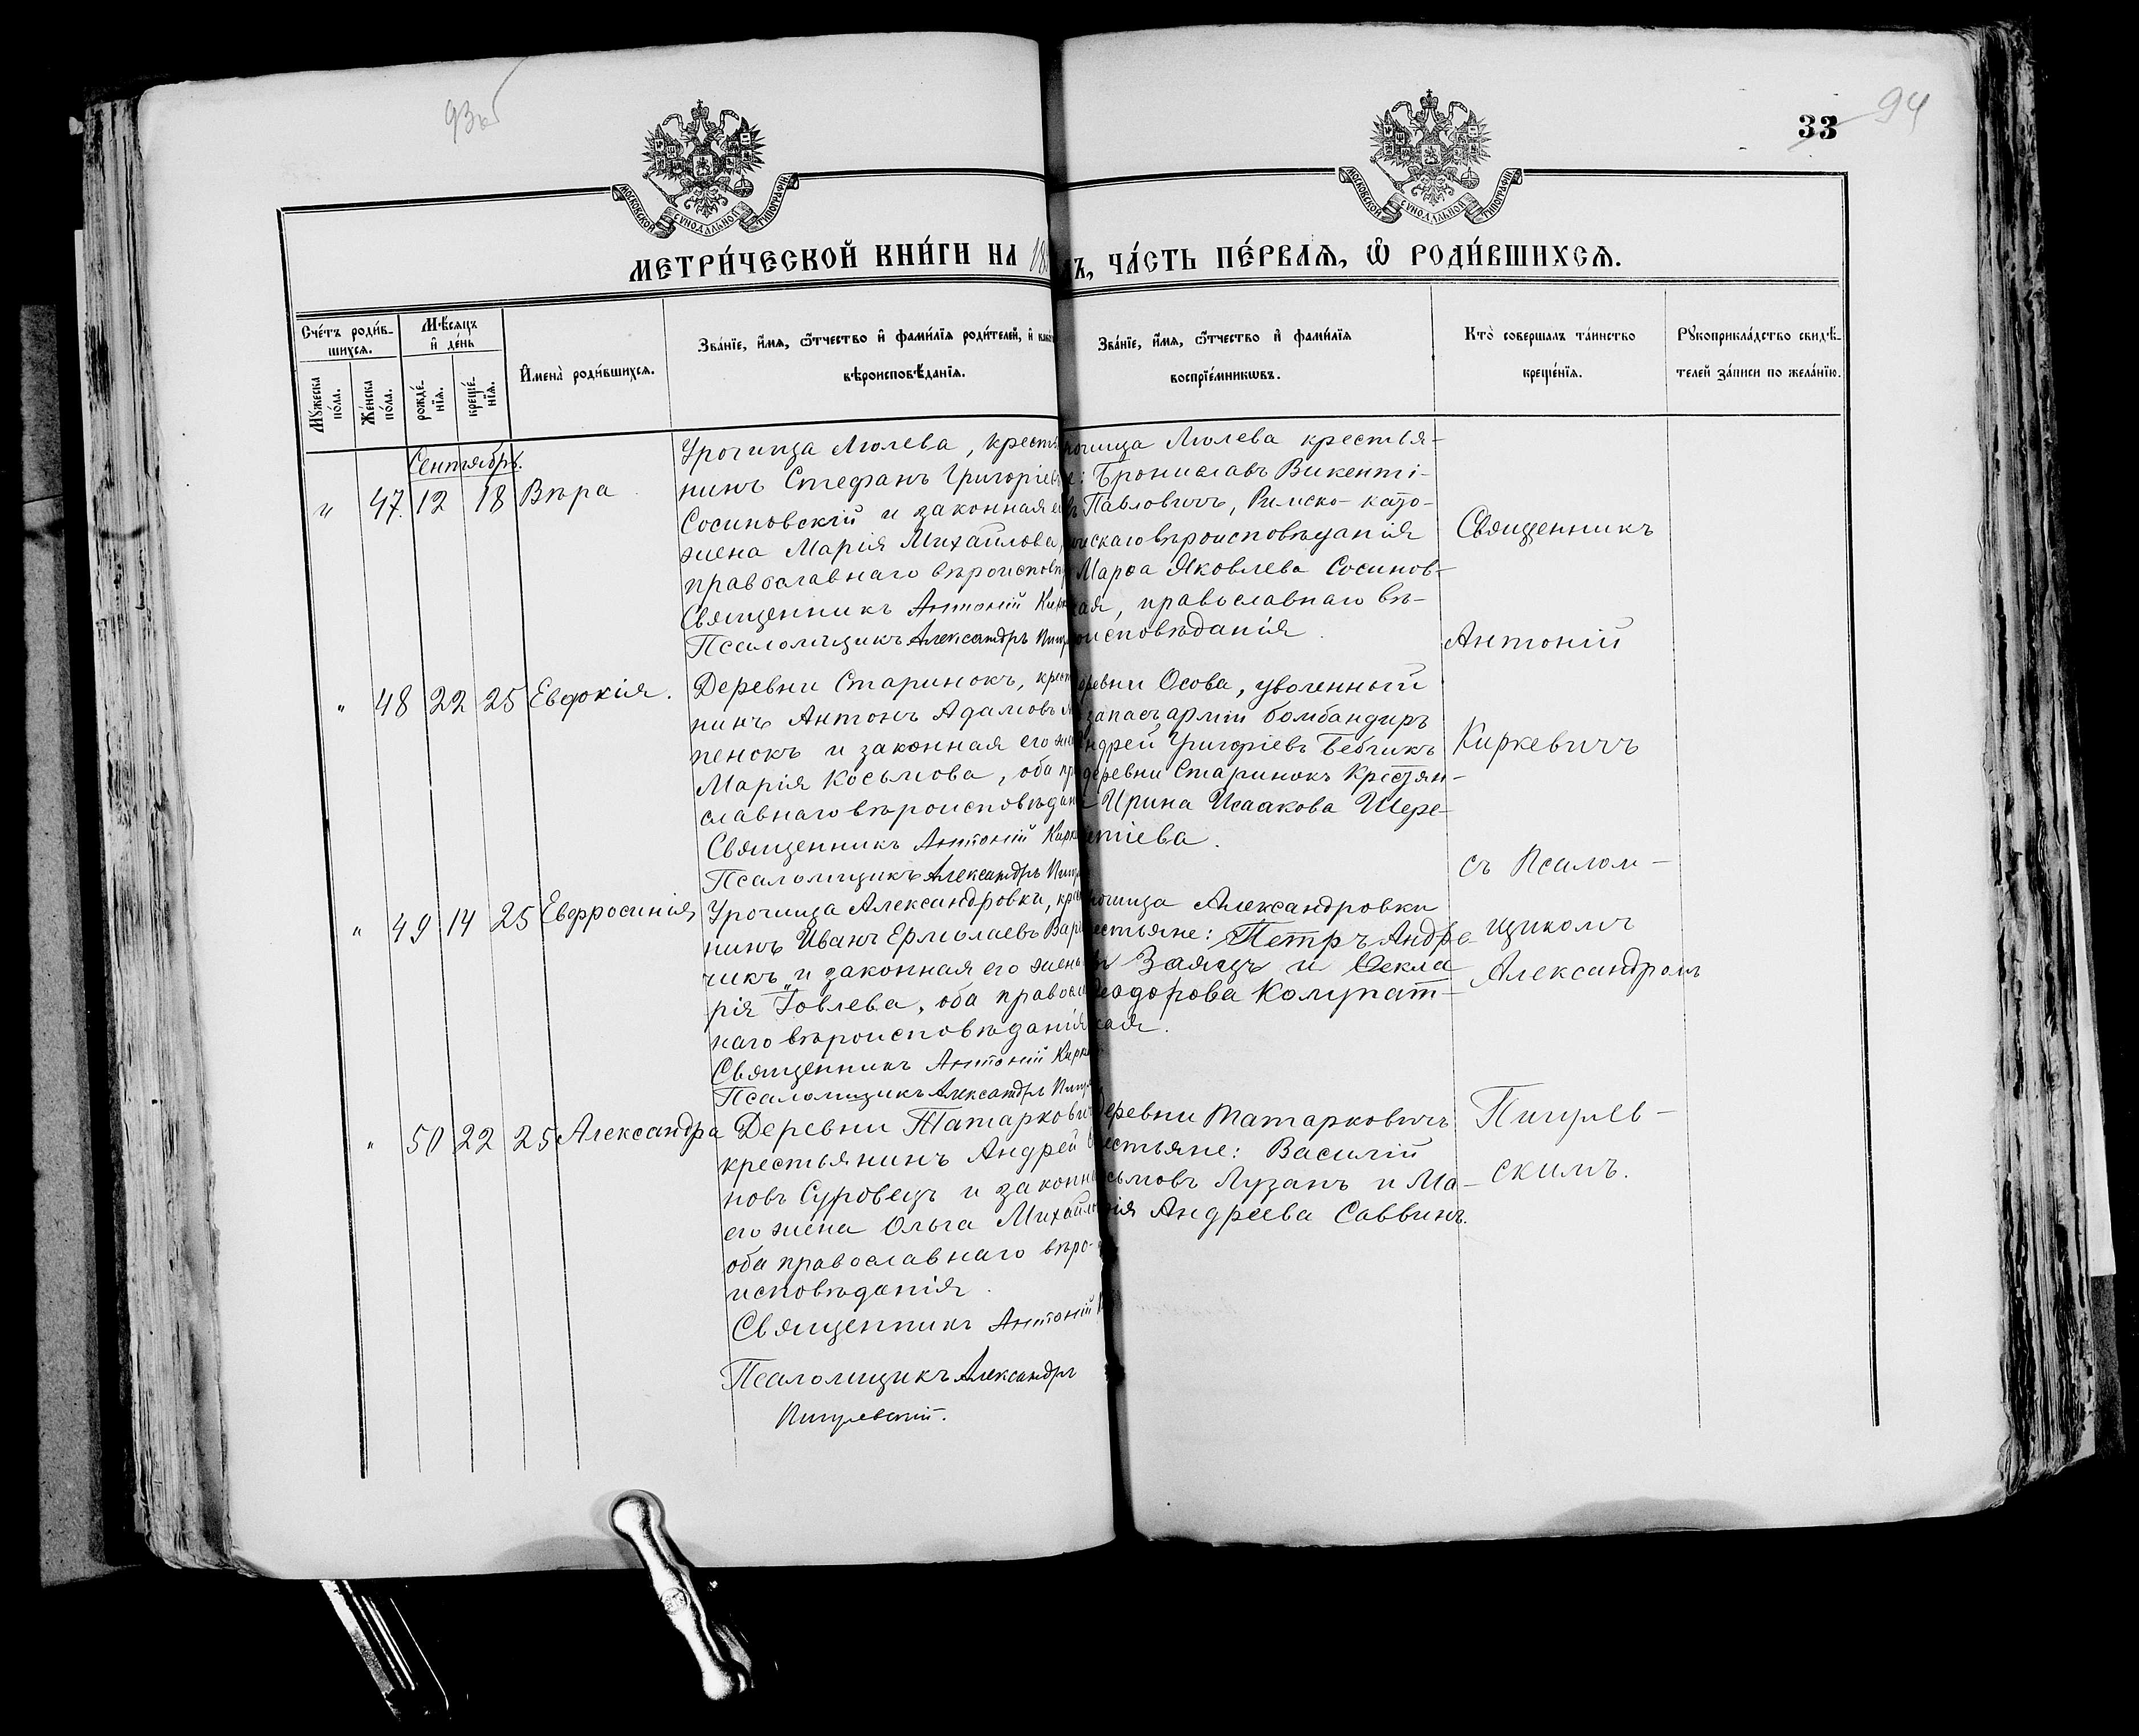 93об
94
33
МОСКОВСКОЙ СѴНОДАЛЬНОЙ ТИПОГРАФІИ
МОСКОВСКОЙ СѴНОДАЛЬНОЙ ТИПОГРАФІИ
МЕТРИ́ЧЕСКОЙ КНИ́ГИ НА 18
Ъ, ЧА́СТЬ ПЕ́РВАѦ, Ѽ РОДИ́ВШИХСѦ.
Сче́тъ роди́в-
шихсѧ.
Мꙋ́жеска
по́ла.
Же́нска
по́ла.
Мѣ́сѧцъ
и҆ де́нь
рожде́-
нїѧ.
креще́-
нїѧ.
И҆мена̀ роди́вшихсѧ.
Зва́нїе, и҆́мѧ, ѻ҆́тчество и҆ фами́лїѧ роди́телей, и҆ како
вѣроисповѣ́данїѧ.
Зва́нїе, и҆́мѧ, ѻ҆́тчество и҆ фами́лїѧ
воспрїе́мникѡвъ.
Кто̀ соверша́лъ та́инство
креще́нїѧ.
Рꙋкоприкла́дство свидѣ́-
телей за́писи по жела́нїю.
Сентябрь.
" 47. 12 18 Вѣра
Урочища Люлева, кресть
нинъ Стефанъ Григоріевъ
Сосиновскій и законная е
жена Марія Михайлова,
православнаго вѣроисповѣ
Священникъ Антоній Кирк
Псаломщикъ Александръ Пигул
рочища Люлева крестья-
е: Брониславъ Викенті-
ъ Павловичъ, Римско-като-
ическаго вѣроисповѣданія
Марѳа Яковлева Сосинов-
кая, православнаго вѣ-
роисповѣданія.
" 48 22 25 Евдокія.
Деревни Старинокъ, крест
нинъ Антонъ Адамовъ
пенокъ и законная его же
Марія Косьмова, оба пр
славнаго вѣроисповѣдан
Священникъ Антоній Кирк
Псаломщикъ Александръ Пигул
еревни Осова, уволенный
запасъ арміи бомбандиръ
ндрей Григоріевъ Бебчикъ
деревни Старинокъ крестян-
Ирина Исаакова Шере-
метіева.
" 49 14 25 Евфросинія
Урочища Александровки, кре
нинъ Иванъ Ермолаевъ Вар
чикъ и законная его жена
рія Іовлева, оба правосл
наго вѣроисповѣданія
Священникъ Антоній Кирк
Псаломщикъ Александръ Пигул
рочища Александровки
естьяне: Петръ Андре-
въ Заяцъ и Ѳекла
Ѳеодорова Колупат-
кая.
" 50 22 25 Александра
Деревни Татаркович
крестьянинъ Андрей
новъ Суровецъ и законна
его жена Ольга Михайло
оба православнаго вѣро-
исповѣданія.
Священникъ Антоній
Псаломщикъ Александръ
Пигулевскій.
еревни Татарковичъ
естьяне: Василій
сьмовъ Лузанъ и Ма-
рія Андреева Саввинъ.
Священникъ
Антоній
Киркевичъ
съ Псалом-
щикомъ
Александромъ
Пигулев-
скимъ.